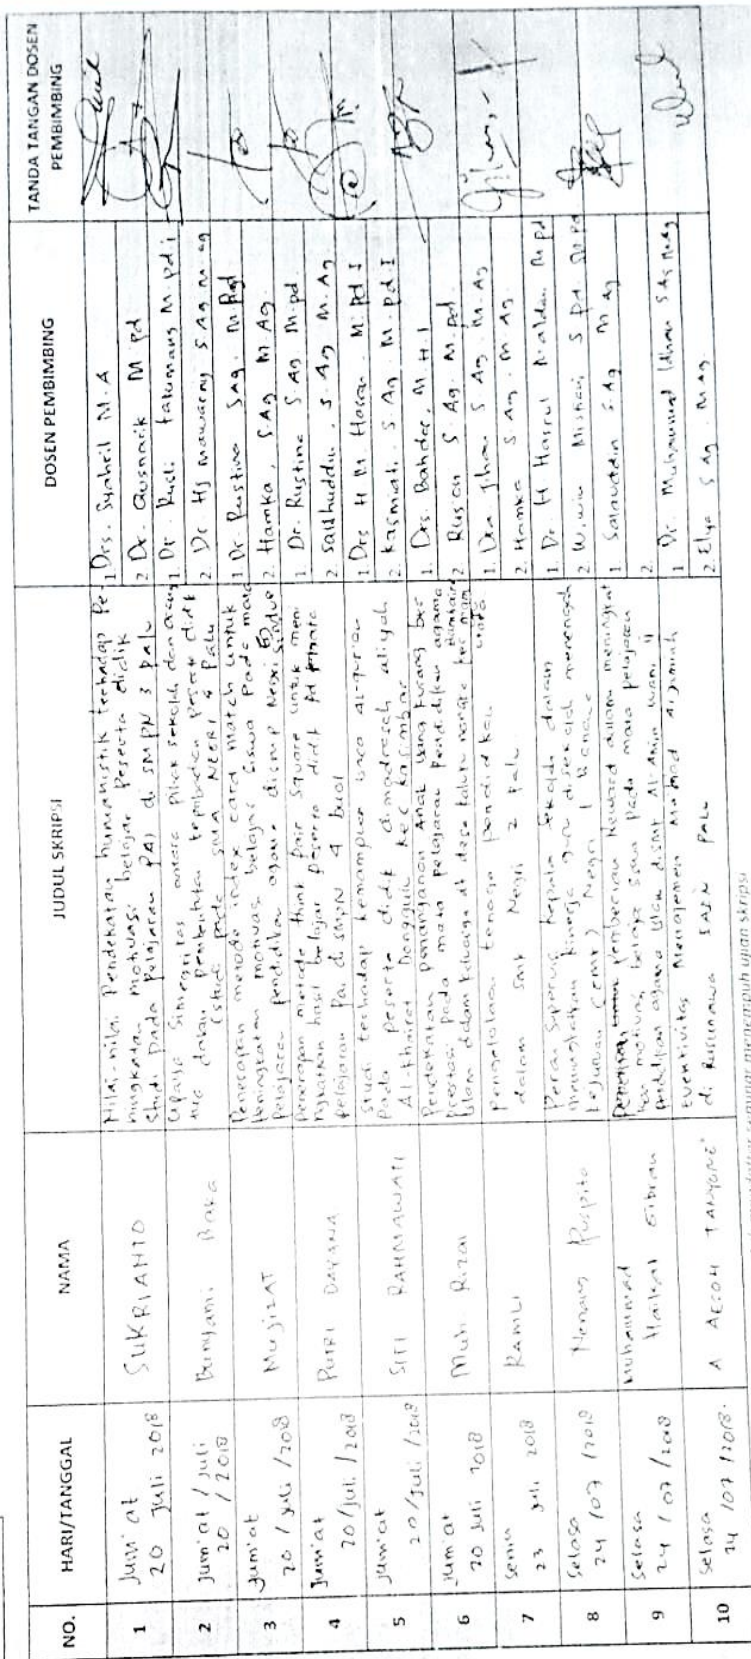 NO.
HARI/TANGGAL
NAMA
JUDUL SKRIPSI
DOSEN PEMBIMBING
TANDA TANGAN DOSEN
PEMBIMBING
1
Jum'at
20 Juli 2018
SUKRIANTO
Nilai-nilai Pendekatan humanistik terhadap Pe
ningkatan motivasi belajar Peserta didik
Studi Pada Pelajaran PAI di SMPN 3 Palu
1 Drs. Syahril M.A
2 Dr. Gusnarib M Pd
2
Jum'at / Juli
20 / 2018
Bunyani
Upaya Sinergitas antara Pihak sekolah dan orang
tua dalam pembentukan kepribadian peserta didik
(studi pada SMA NEGRI 4 Palu
1. Dr. Rusli Takunas M.pd.i
2 Dr Hj Mawarny S.Ag M.ag
3
Jum'at
20 / Juli / 2018
MUJIZAT
Penerapan metode index card match untuk
Peningkatan motivas belajar Siswa Pada mata
Pelajaran pendidikan agama di smp Negri
1 Dr Rustina S.Ag. M.Pd
2. Hamka, S.Ag M Ag.
4
Jum'at
20 / Juli / 2018
PUTRI DAYANA
Penerapan metode think Pair Square untuk meni
ngkatkan hasil belajar Peserta didik Pd mata
Pelajaran Pai di SMPN 4 buol
1. Dr. Rustina S.Ag M.pd.
2 Saidhuddin, S.Ag M.Ag
5
Jum'at
20 / Juli / 2018
SITI RAHMAWATI
Studi terhadap kemampuan baca al-qur'an
Pada peserta didik di madrasah aliyah
Al-khairat Donggulu kec kasimbar
1 Drs H M Hasan. M.Pd.I
2 Kasmiati. S.Ag M.Pd.I
6
Jum'at
20 Juli 2018
Muh Rizal
Pendekatan penanganan Anak Yang kurang ber
Prestasi pada mata pelajaran Pendidikan agama
islam dalam keluarga di desa
1. Drs. Bahdar, M.H.I
2 Rusdin S.Ag. M.pd.
7
Senin
23 Juli 2018
RAMLI
pengelolaan tenaga pendidikan
dalam Smk Negri 2 palu
1. Dra Jihan S.Ag. M.Ag
2. Hamka S.Ag. M.Ag.
8
Selasa
24 / 07 / 2018
Nenang Puspita
Peran Supervisi kepala sekolah dalam
meningkatkan kinerja guru disekolah menengah
kejuruan (SMK) Negri 1
1. Dr. H Hasrul M.pd
2 Wiwin Mistiani S Pd M Pd
9
Selasa
24 / 07 / 2018
Muhammad
Haikal Gibran
Pemberian Reward dalam meningkat
kan motivasi belajar siswa pada mata pelajaran
pendidikan agama islam
1 Salahuddin S.Ag M ag
2.
10
Selasa
24 / 07 / 2018.
Efektivitas Manajemen Ma'had Aljamiah
di Rusunawa IAIN PALU
1 Dr. Muhammad Idhan S.Ag M.Ag
2. Elya S.Ag. M.Ag.
seminar menempuh ujian skripsi